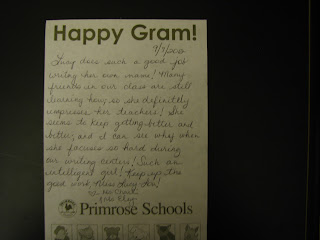 Happy Gram!
Lucy does such a good job
writing her own name! Many
friends in our class are still
learning how, so she definitely
impresses her teachers! She
seems to keep getting better and
better, and I can see why when
she focuses so hard during
our writing centers! Such an
intelligent girl! Keep up the
good work, Miss Lucy
Primrose Schools